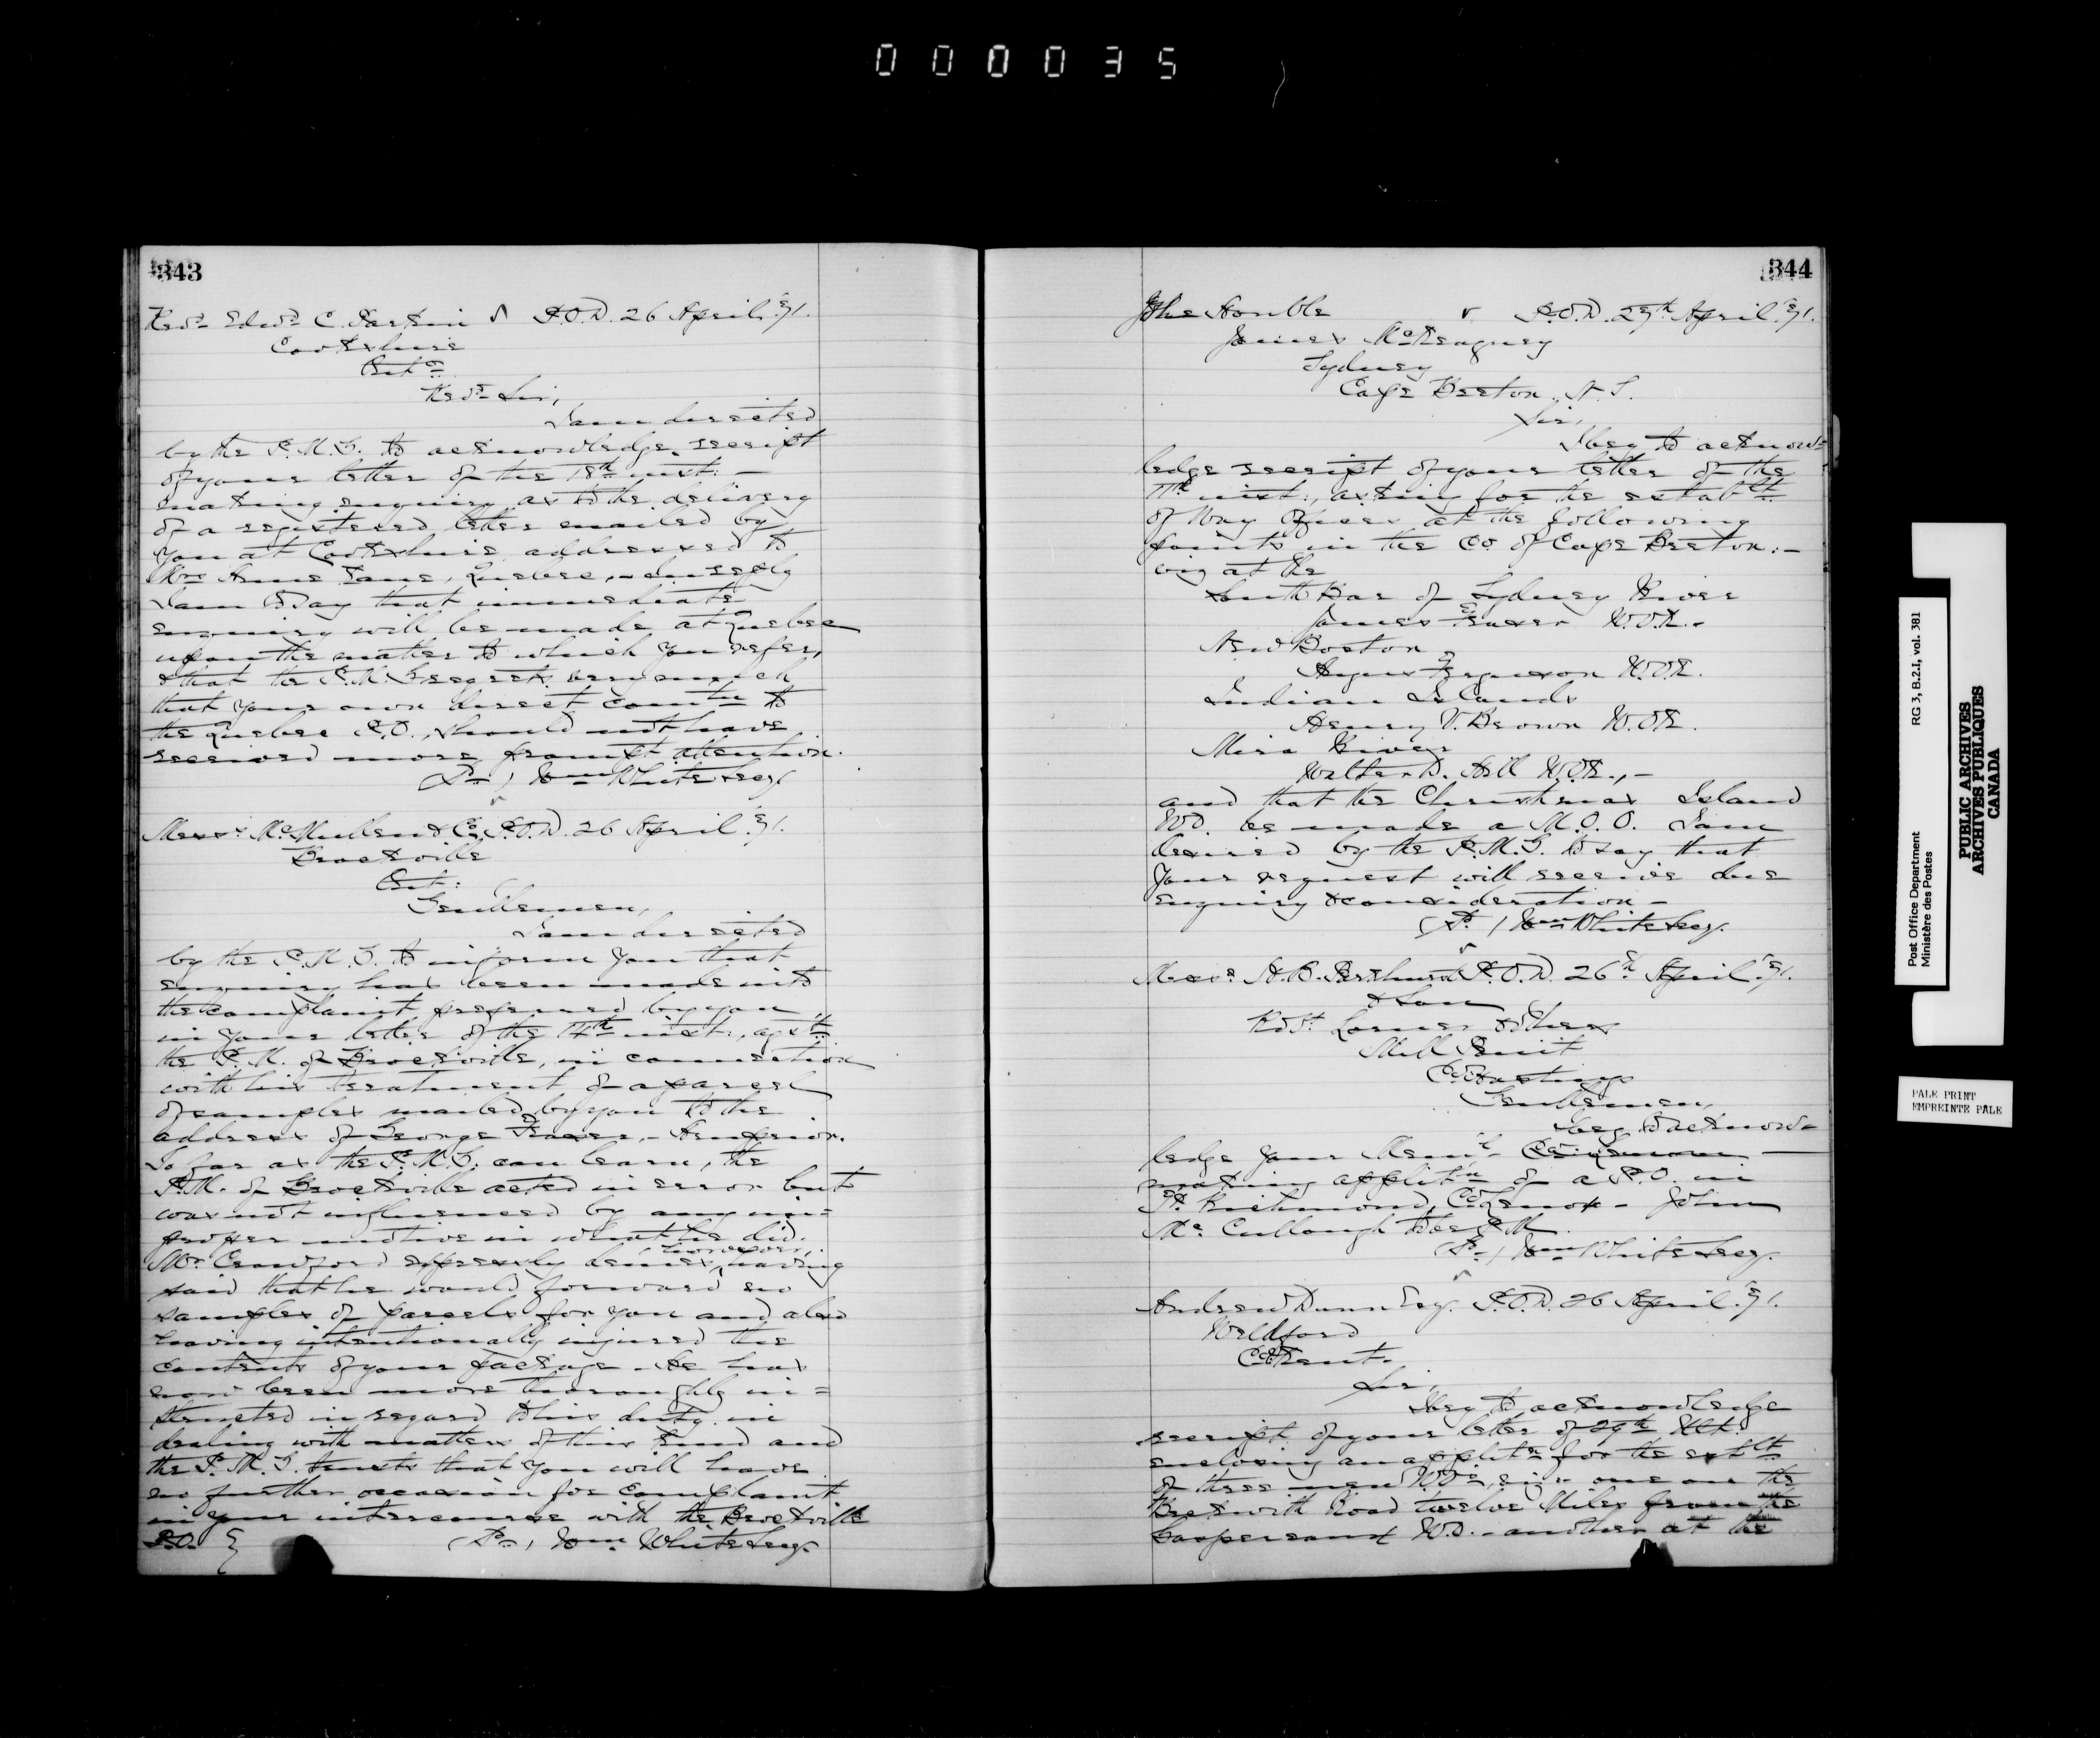 000035
343
Revd Edwd C. Parkin P.O.D. 26 April '71.
Cookshire
Revd Sir,
I am directed
by the P.M.G. to acknowledge receipt
of your letter of the 18th inst: —
making enquiry as to the delivery
of a registered letter mailed by
you at Cookshire addressed to
Mrs Anne Lane, Quebec, - In reply
I am to say that immediate
enquiry will be made at Quebec
upon the matter to which you refer,
& that the P.M.G regrets very much
that your own direct comtn to
the Quebec P.O., should not have
received more prompt attention.
(Sd) Wm White Secy.
Messrs McMullen & Co, P.O.D. 26 April '71.
Brockville
Ont:
Gentlemen,
I am directed
by the P.M.G. to inform you that
enquiry has been made into
the complaint preferred by you
in your letter of the 14th inst:, agst
the P.M. of Brockville, in connection
with his treatment of a parcel
of samples mailed by you to the
address of George Fraser, - Arnprior.
So far as the P.M.G. can learn, the
P.M. of Brockville acted in error but
was not influenced by any im=
proper motive in what he did.
Mr Crawford expressly denies, however, having
said that he would forward no
samples of parcels for you and also
having intentionally injured the
contents of your package - He has
now been more thoroughly in=
structed in regard to his duty in
dealing with matters of this kind and
the P.M.G. trusts that you will have
no further occasion for complaint
in your intercourse with the Brockville
P.O. (Sd) Wm White Secy.
344
The Honble P.O.D. 25th April '71.
James McKeagney
Sydney
Cape Breton. N.S.
Sir,
I beg to acknow=
ledge receipt of your letter of the
11th inst:, asking for the establt
of Way Offices at the following
points in the Co of Cape Breton: -
viz at the
South Bar of Sydney River
James Fraser W.O.K. -
New Boston
Angus Ferguson W.O.K.
Indian Islands
Henry V. Brown W.O.K.
Mira River
Walter D. Hill W.O.K., -
and that the Christmas Island
W.O. be made a M.O.O. I am
desired by the P.M.G. to say that
your request will receive due
enquiry & consideration -
(Sd) Wm White Secy.
Messrs H.B. Parkhurst P.O.D. 26th April '71.
& Son
Robt Lorner & others
Mill Point
Co Hastings
Gentlemen,
I beg to acknow=
ledge your Meml
making applitn of a P.O. in
Richmond, Co Lenox - John
McCullough to be P.M.
(Sd) Wm White Secy.
Andrew Dunn Esq. P.O.D. 26 April '71.
Weldford
Co Kent.
Sir,
I beg to acknowledge
receipt of your letter of 29th Ult.
enclosing an applitn for the estblt
of three new W.Os, viz: one on the
Beckwith Road twelve Miles from the
W.O. - another at the
Post Office Department
Ministère des Postes
RG 3, B.2.I, vol. 381
PUBLIC ARCHIVES
ARCHIVES PUBLIQUES
CANADA
PALE PRINT
EMPREINTE PALE